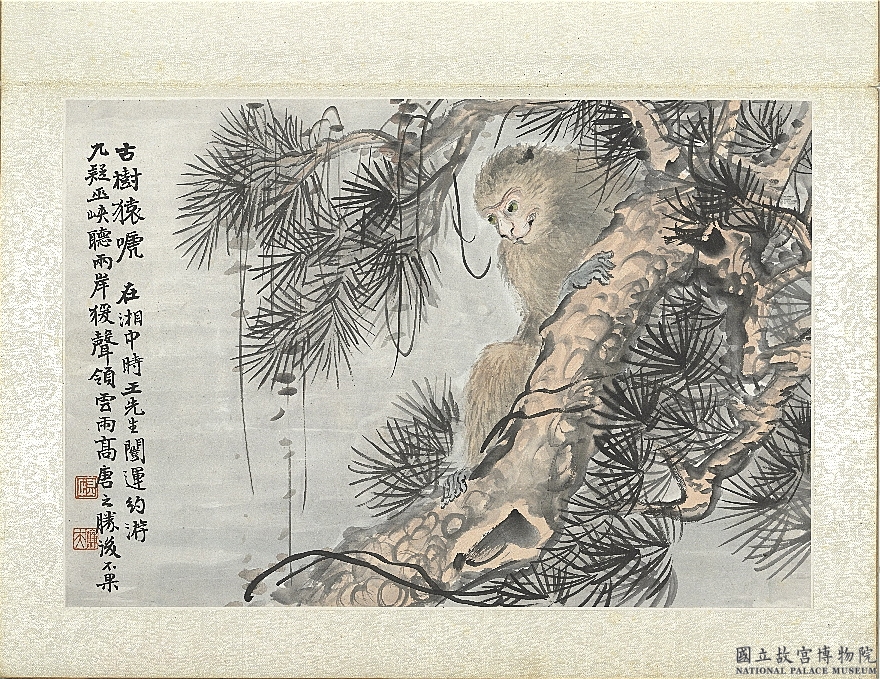 古樹猿嗁 在湘中時王先生闓運約游
九疑巫峽聽兩岸猨聲領雲雨高唐之勝後不果
國立故宮博物院
NATIONAL PALACE MUSEUM